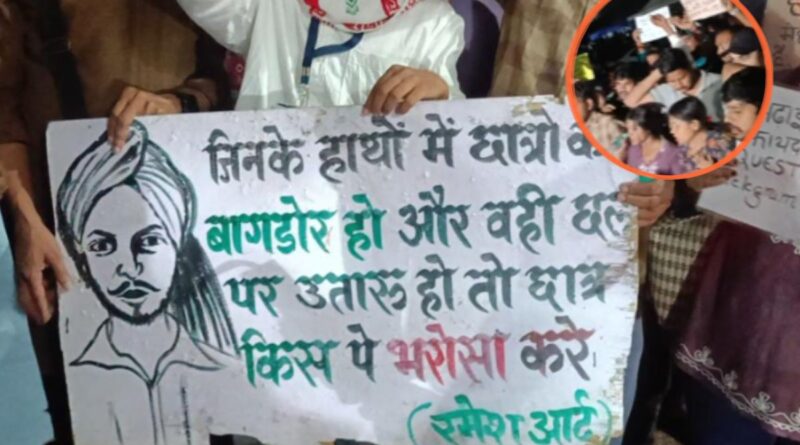 जिनके हाथों में छात्रो
बागडोर हो और वही छल
पर उतारू हो तो छात्र
किस पे भरोसा करे
(रमेश आर्ट)